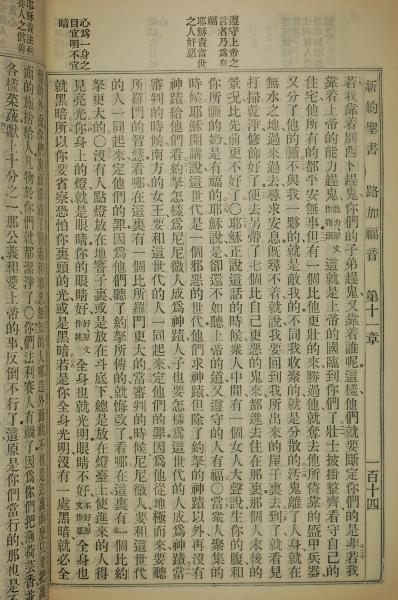 新約聖書 路加福音 第十一章 百十四
遵守上帝之言者乃為有
耶穌責當世之人奸惡
心為一身之目宜明不宜暗
若我靠着別西卜趕鬼你們的子弟趕鬼又靠着誰呢這樣他們就要斷定你們的是非若我
靠着上帝的能力趕鬼這就是上帝的國臨到你們了壯士披掛整齊看守自己的
住宅他所有的都平安無事但有一個比他更壯的來勝過他就奪去他所倚靠的盔甲兵器
又分了他的贓不與我一夥的就是敵我的不同我收聚的就是分散的汚鬼離了人身就在
無水之地過來過去尋求安息既尋不着就說我要回到我所出來的屋子裏去到了就看見
打掃乾淨修飾好了便去另帶了七個比自己更惡的鬼來都進去住在那裏那個人末後的
景況比先前更不好了〇耶穌正說這話的時候衆人中間有一個女人大聲說生你的腹和
你所咂的奶是有福的耶穌說是卻還不如聽上帝的道又遵守的人有福〇當衆人聚集的
時候耶穌開講說這世代是一個邪惡的世代他們求神蹟但除了約拏的神蹟以外再沒有
神蹟給他們看約拏怎樣為尼尼微人成為神蹟人子也要怎樣為這世代的人成為神蹟當
審判的時候南方的女王要和這世代的人一同起來定他們的罪因為他從地極而來要聽
所羅門的智慧看哪在這裏有一個比所羅門更大的當審判的時候尼尼微人要和這世代
的人一同起來定他們的罪因為他們聽了約拏所傳的就悔改了看哪在這裏有一個比約
拏更大的〇沒有人點燈放在地窨子裏或是放在斗底下總是放在燈臺上使進來的人得
見亮光你身上的燈就是眼睛你的眼睛好全身也就光明眼睛不好全身也
就黑暗所以你要省察恐怕你裏頭的光或是黑暗若是你全身光明沒有一處黑暗就必全
耶穌責法利
面的施捨給人凡物於你們就都潔淨了〇你們法利賽人有禍了因為你們把薄荷芸香
各樣菜蔬獻十分之一那公義和愛上帝的事反倒不行了這原是你們當行的那也是